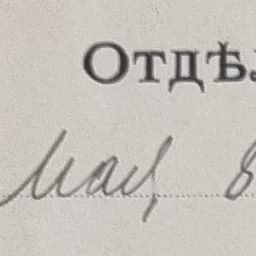 Отдѣл
Мая 8